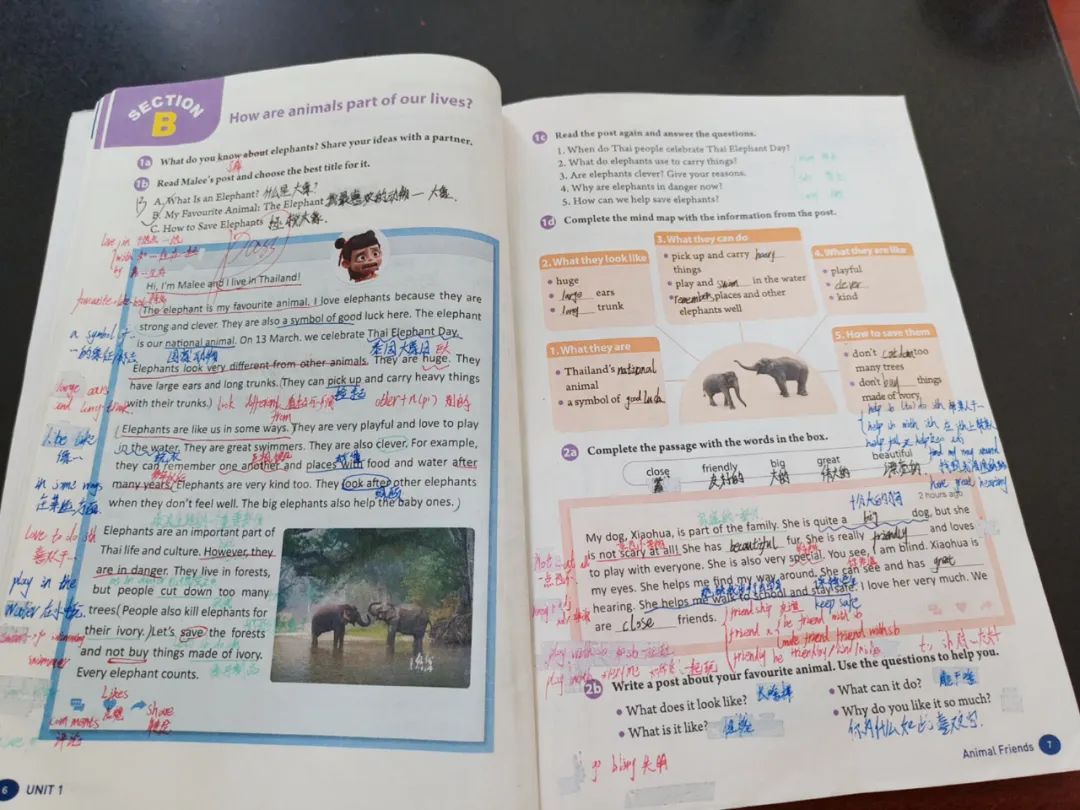 SECTION
B
How are animals part of our lives?
1a What do you know about elephants? Share your ideas with a partner.
1b Read Malee's post and choose the best title for it.
B
A. What Is an Elephant? 什么是大象?
B. My Favourite Animal: The Elephant 我最喜欢的动物 — 大象.
C. How to Save Elephants 拯救大象.
Hi, I'm Malee and I live in Thailand!
The elephant is my favourite animal. I love elephants because they are
strong and clever. They are also a symbol of good luck here. The elephant
is our national animal. On 13 March, we celebrate Thai Elephant Day.
国家动物
泰国大象日
Elephants look very different from other animals. They are huge. They
have large ears and long trunks. (They can pick up and carry heavy things
with their trunks.)
look different from
other + n(pl) 别的
(Elephants are like us in some ways.) They are very playful and love to play
in the water. They are great swimmers. They are also clever. For example,
they can remember one another and places with food and water after
many years. Elephants are very kind too. They look after other elephants
when they don't feel well. The big elephants also help the baby ones.)
Elephants are an important part of
Thai life and culture. However, they
are in danger. They live in forests,
but people cut down too many
trees. (People also kill elephants for
their ivory.) Let's save the forests
and not buy things made of ivory.
Every elephant counts.
a symbol of
large ears
and long trunk
in some ways
love to do sth
喜欢干…
play in the
water
swimmer
Likes
Share
comments
评论
6 UNIT 1
1c Read the post again and answer the questions.
1. When do Thai people celebrate Thai Elephant Day?
2. What do elephants use to carry things?
3. Are elephants clever? Give your reasons.
4. Why are elephants in danger now?
5. How can we help save elephants?
1d Complete the mind map with the information from the post.
2. What they look like
• huge
• large ears
• long trunk
3. What they can do
• pick up and carry heavy
things
• play and swim in the water
• remember places and other
elephants well
4. What they are like
• playful
• clever
• kind
1. What they are
• Thailand's national
animal
• a symbol of good luck
5. How to save them
• don't cut down too
many trees
• don't buy things
made of ivory
2a Complete the passage with the words in the box.
close friendly big great beautiful
友好的 大的 伟大的
2 hours ago
My dog, Xiaohua, is part of the family. She is quite a big dog, but she
is not scary at all! She has beautiful fur. She is really friendly and loves
to play with everyone. She is also very special. You see, I am blind. Xiaohua is
my eyes. She helps me find my way around. She can see and has great
hearing. She helps me walk to school and stay safe. I love her very much. We
are close friends.
friendship 友谊
keep safe
have great hearing
2b Write a post about your favourite animal. Use the questions to help you.
• What does it look like? 长啥样
• What is it like? 性格
• What can it do? 能干啥
• Why do you like it so much?
你为什么如此喜欢它
Animal Friends 7